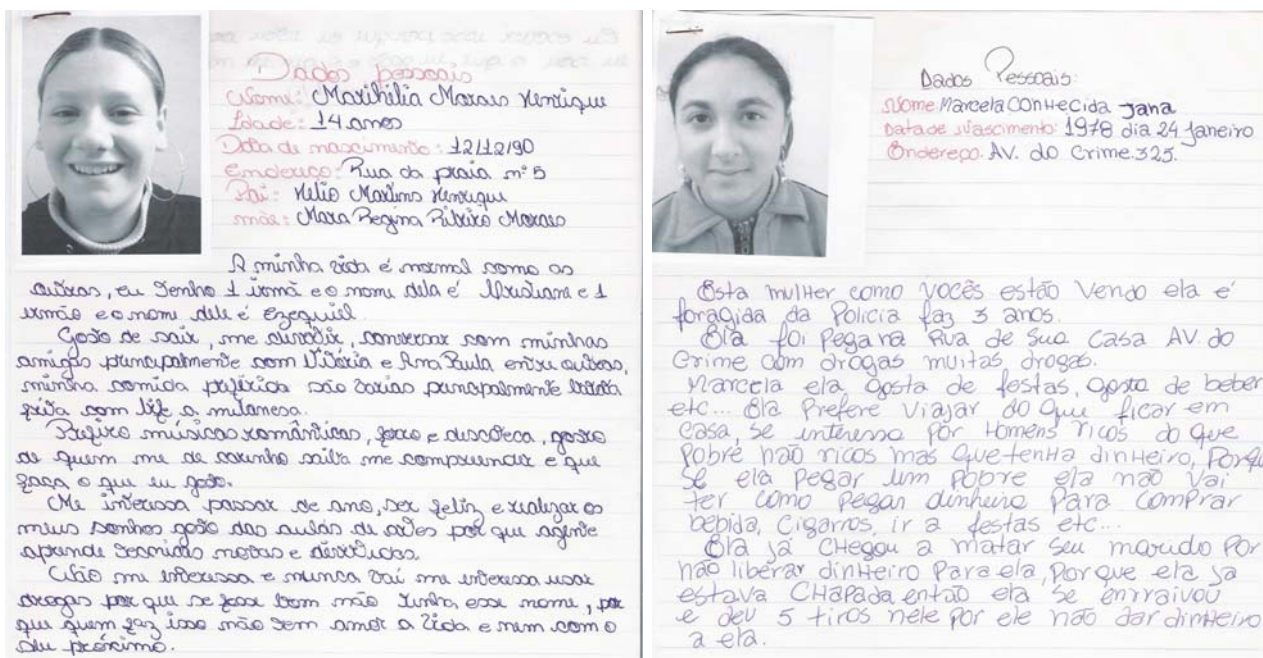 Dados pessoais
Nome: Marihilia Moraes Henrique
Idade: 14 anos
Data de nascimento: 12/12/90
Endereço: Rua da praia nº 5
Pai: Helio Martins Henrique
mãe: Mara Regina Ribeiro Moraes
A minha vida é normal como as
outras, eu tenho 1 irmã e o nome dela é e 1
irmão e o nome dele é Ezequiel.
Gosto de sair, me divertir, conversar com minhas
amigas principalmente com Vitória e Ana Paula entre outras,
minha comida preferida são varias principalmente batata
frita com bife a milanesa.
Prefiro músicas românticas, forro e discoteca, gosto
de quem me de carinho saiba me compreender e que
faça o que eu gosto.
Me interessa passar de ano, ser feliz e realizar os
meus sonhos gosto das aulas de artes por que agente
aprende tecnicas novas e divertidas.
Não me interessa e nunca vai me interessa usar
drogas por que se fosse bom não tinha esse nome, por
que quem faz isso não tem amor a vida e nem com o
seu próximo.
Dados Pessoais:
Nome: Marcela CONHecida Jana
Data de Nascimento: 1978 dia 24 Janeiro
Endereço. AV. do Crime. 325.
Esta mulHer como vocês estão vendo ela é
foragida da Policia faz 3 anos.
Ela foi Pega na Rua de Sua Casa AV. do
Crime com drogas muitas drogas.
Marcela ela gosta de festas, gosta de beber
etc... Ela Prefere viajar do que ficar em
casa, se interessa por Homens ricos do que
Pobre não ricos mas que tenHa dinHeiro, Porque
se ela pegar um Pobre ela não vai
ter como pegar dinheiro Para comprar
bebida, Cigarros, ir a festas etc...
Ela já CHegou a matar seu marido Por
não liberar dinHeiro Para ela, Porque ela ja
estava CHapada então ela se enrraivou
e deu 5 tiros nele por ele não dar dinHeiro
a ela.